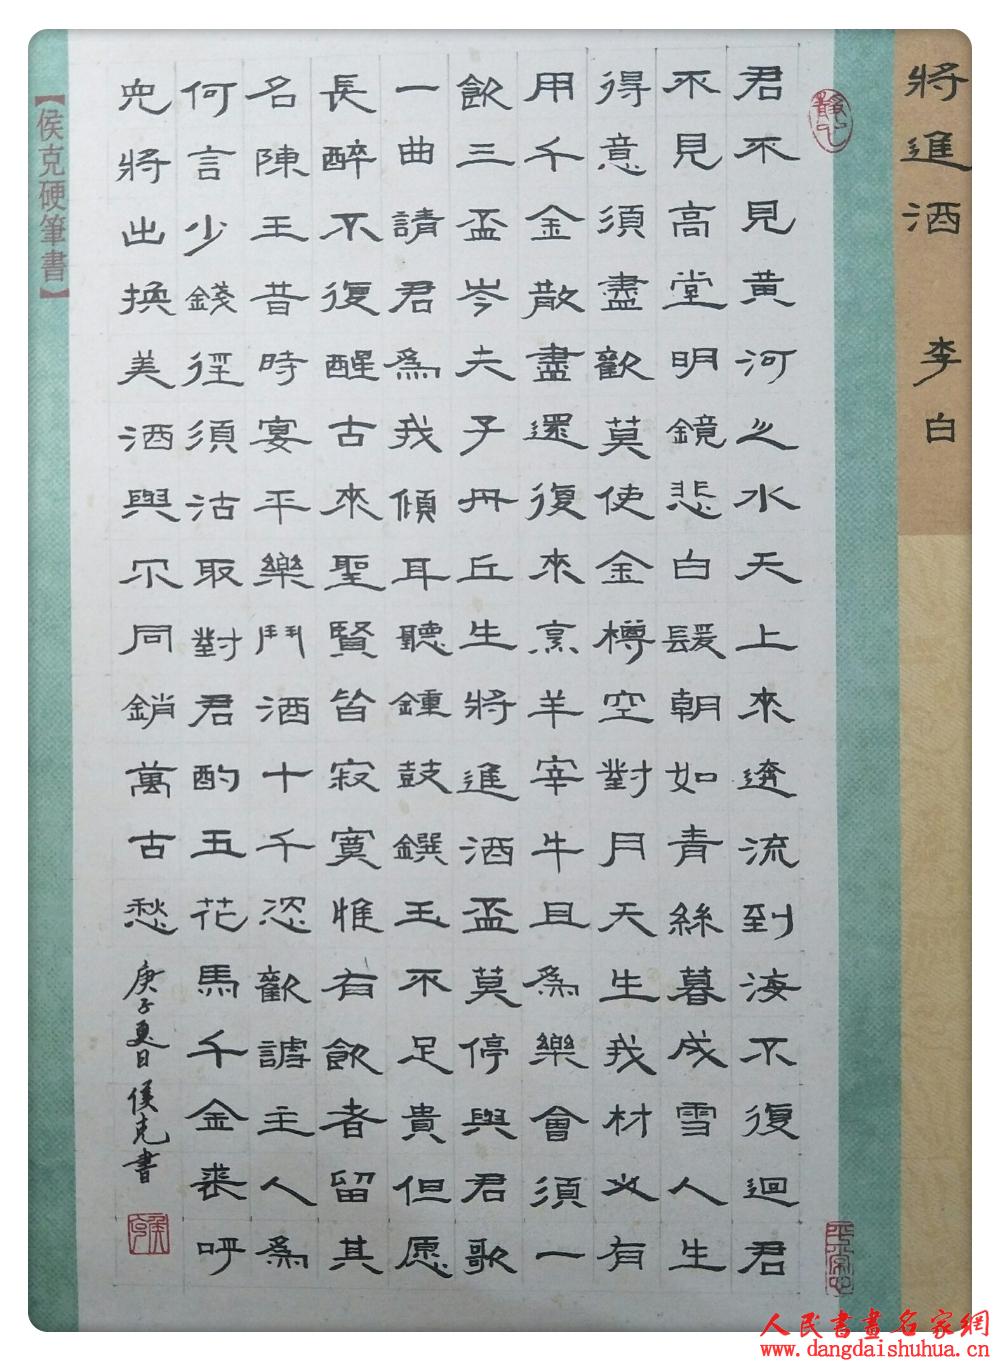 將進酒 李白
君不見黃河之水天上來逩流到海不復迴君
不見高堂明鏡悲白髮朝如青絲暮成雪人生
得意須盡歡莫使金樽空對月天生我材必有
用千金散盡還復來烹羊宰牛且為樂會須一
飲三盃岑夫子丹丘生將進酒盃莫停與君歌
一曲請君為我傾耳聽鍾鼓饌玉不足貴但愿
長醉不復醒古來聖賢皆寂寞惟有飲者留其
名陳王昔時宴平樂鬥酒十千恣歡謔主人為
何言少錢徑須沽取對君酌五花馬千金裘呼
兒將出換美酒與尒同銷萬古愁 庚子夏日 侯克書
【侯克硬筆書】
靜心
平常心
侯克
人民書畫名家網
www.dangdaishuhua.cn